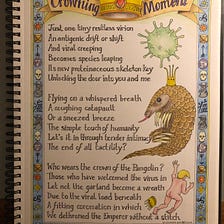 Crowning Moment
Just one tiny restless virion
An antigenic drift or shift
And viral creeping
Becomes species leaping
Its new proteinaceous skeleton key
Unlocking the door into you and me
Flying on a whispered breath
A coughing catapult
Or a sneezed breeze
The simple touch of humanity
Let's it in through tender intimacy
The end of all tactility?
Who wears the crown of the Pangolin?
Those who have welcomed the virus in
Let not the garland become a wreath
Due to the viral load beneath
A fitting coronation in which
We dethroned the Emperor without a stitch